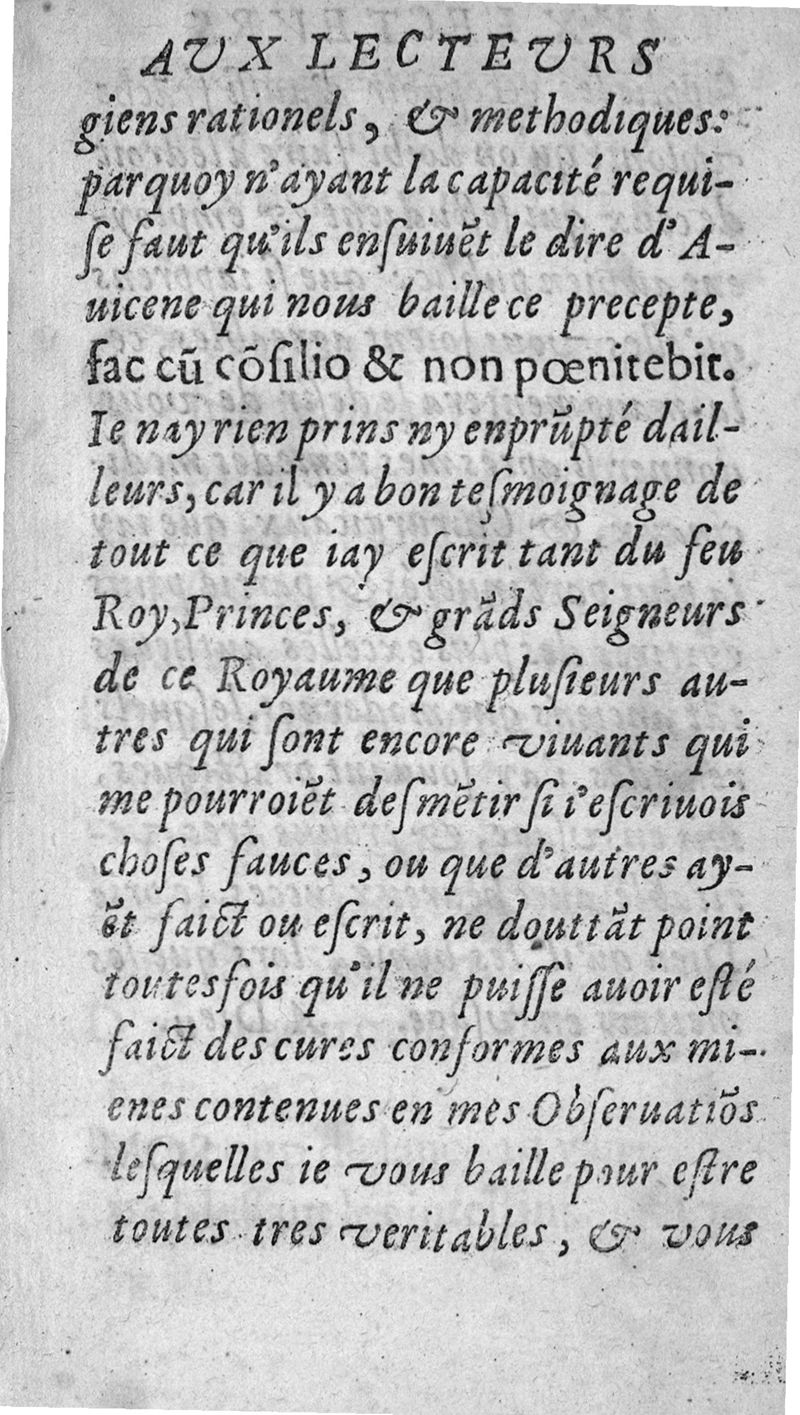 AUX LECTEURS
giens rationels, & methodiques:
parquoy n'ayant la capacité requi-
ſe faut qu'ils enſuiuẽt le dire d'A-
uicene qui nous baille ce precepte,
fac cũ cõſilio & non pœnitebit.
Ie nay rien prins ny enprũpté dail-
leurs, car il y a bon teſmoignage de
tout ce que iay eſcrit tant du feu
Roy, Princes, & grãds Seigneurs
de ce Royaume que pluſieurs au-
tres qui ſont encore viuants qui
me pourroiẽt deſmẽtir ſi i'eſcriuois
choſes fauces, ou que d'autres ay-
ẽt faict ou eſcrit, ne douttãt point
toutesfois qu'il ne puiſſe auoir eſté
faict des cures conformes aux mi-
enes contenues en mes Obſeruatiõs
leſquelles ie vous baille pour eſtre
toutes tres veritables, & vous